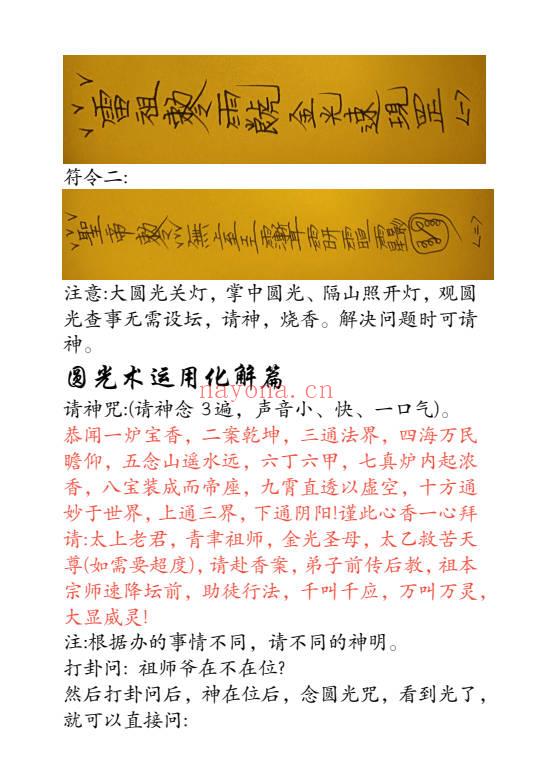 雷祖敕令
金光速現罡
(一)
符令二:
聖帝敕令
(二)
注意:大圆光关灯，掌中圆光、隔山照开灯，观圆
光查事无需设坛，请神，烧香。解决问题时可请
神。
圆光术运用化解篇
nayona.cn
请神咒:(请神念 3遍，声音小、快、一口气)。
恭闻一炉宝香，二案乾坤，三通法界，四海万民
瞻仰，五念山遥水远，六丁六甲，七真炉内起浓
香，八宝装成而帝座，九霄直透以虚空，十方通
妙于世界，上通三界，下通阴阳!谨此心香一心拜
请:太上老君，青聿祖师，金光圣母，太乙救苦天
尊(如需要超度)，请赴香案，弟子前传后教，祖本
宗师速降坛前，助徒行法，千叫千应，万叫万灵，
大显威灵!
注:根据办的事情不同，请不同的神明。
打卦问: 祖师爷在不在位?
然后打卦问后，神在位后，念圆光咒，看到光了，
就可以直接问: